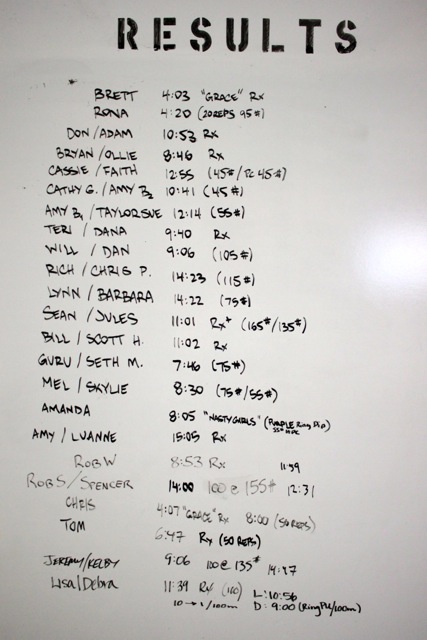 RESULTS
BRETT 4:03 "GRACE" Rx
RONA 4:20 (20 REPS 95#)
DON/ADAM 10:53 Rx
BRYAN/OLLIE 8:46 Rx
CASSIE/FAITH 12:55 (45#/PC 45#)
CATHY G./AMY B2 10:41 (45#)
AMY B1/TAYLORSUE 12:14 (55#)
TERI/DANA 9:40 Rx
WILL/DAN 9:06 (105#)
RICH/CHRIS P. 14:23 (115#)
LYNN/BARBARA 14:22 (75#)
SEAN/JULES 11:01 Rx+ (165#/135#)
BILL/SCOTT H. 11:02 Rx
GURU/SETH M. 7:46 (75#)
MEL/SKYLIE 8:30 (75#/55#)
AMANDA 8:05 "NASTY GIRLS" (PURPLE Ring Dip)
55# HPC
AMY/LUANNE 15:05 Rx
ROB W 8:53 Rx 11:59
ROB S/SPENCER 14:00 100 @ 155# 12:31
CHRIS 4:07 "GRACE" Rx 8:00 (50 REPS)
TOM 6:47 Rx (50 REPS)
JEREMY/KELBY 9:06 100 @ 135# 14:47
Lisa/Debra 11:39 Rx (110) L: 10:56
10→1/100m D: 9:00 (Ring PU/100m)